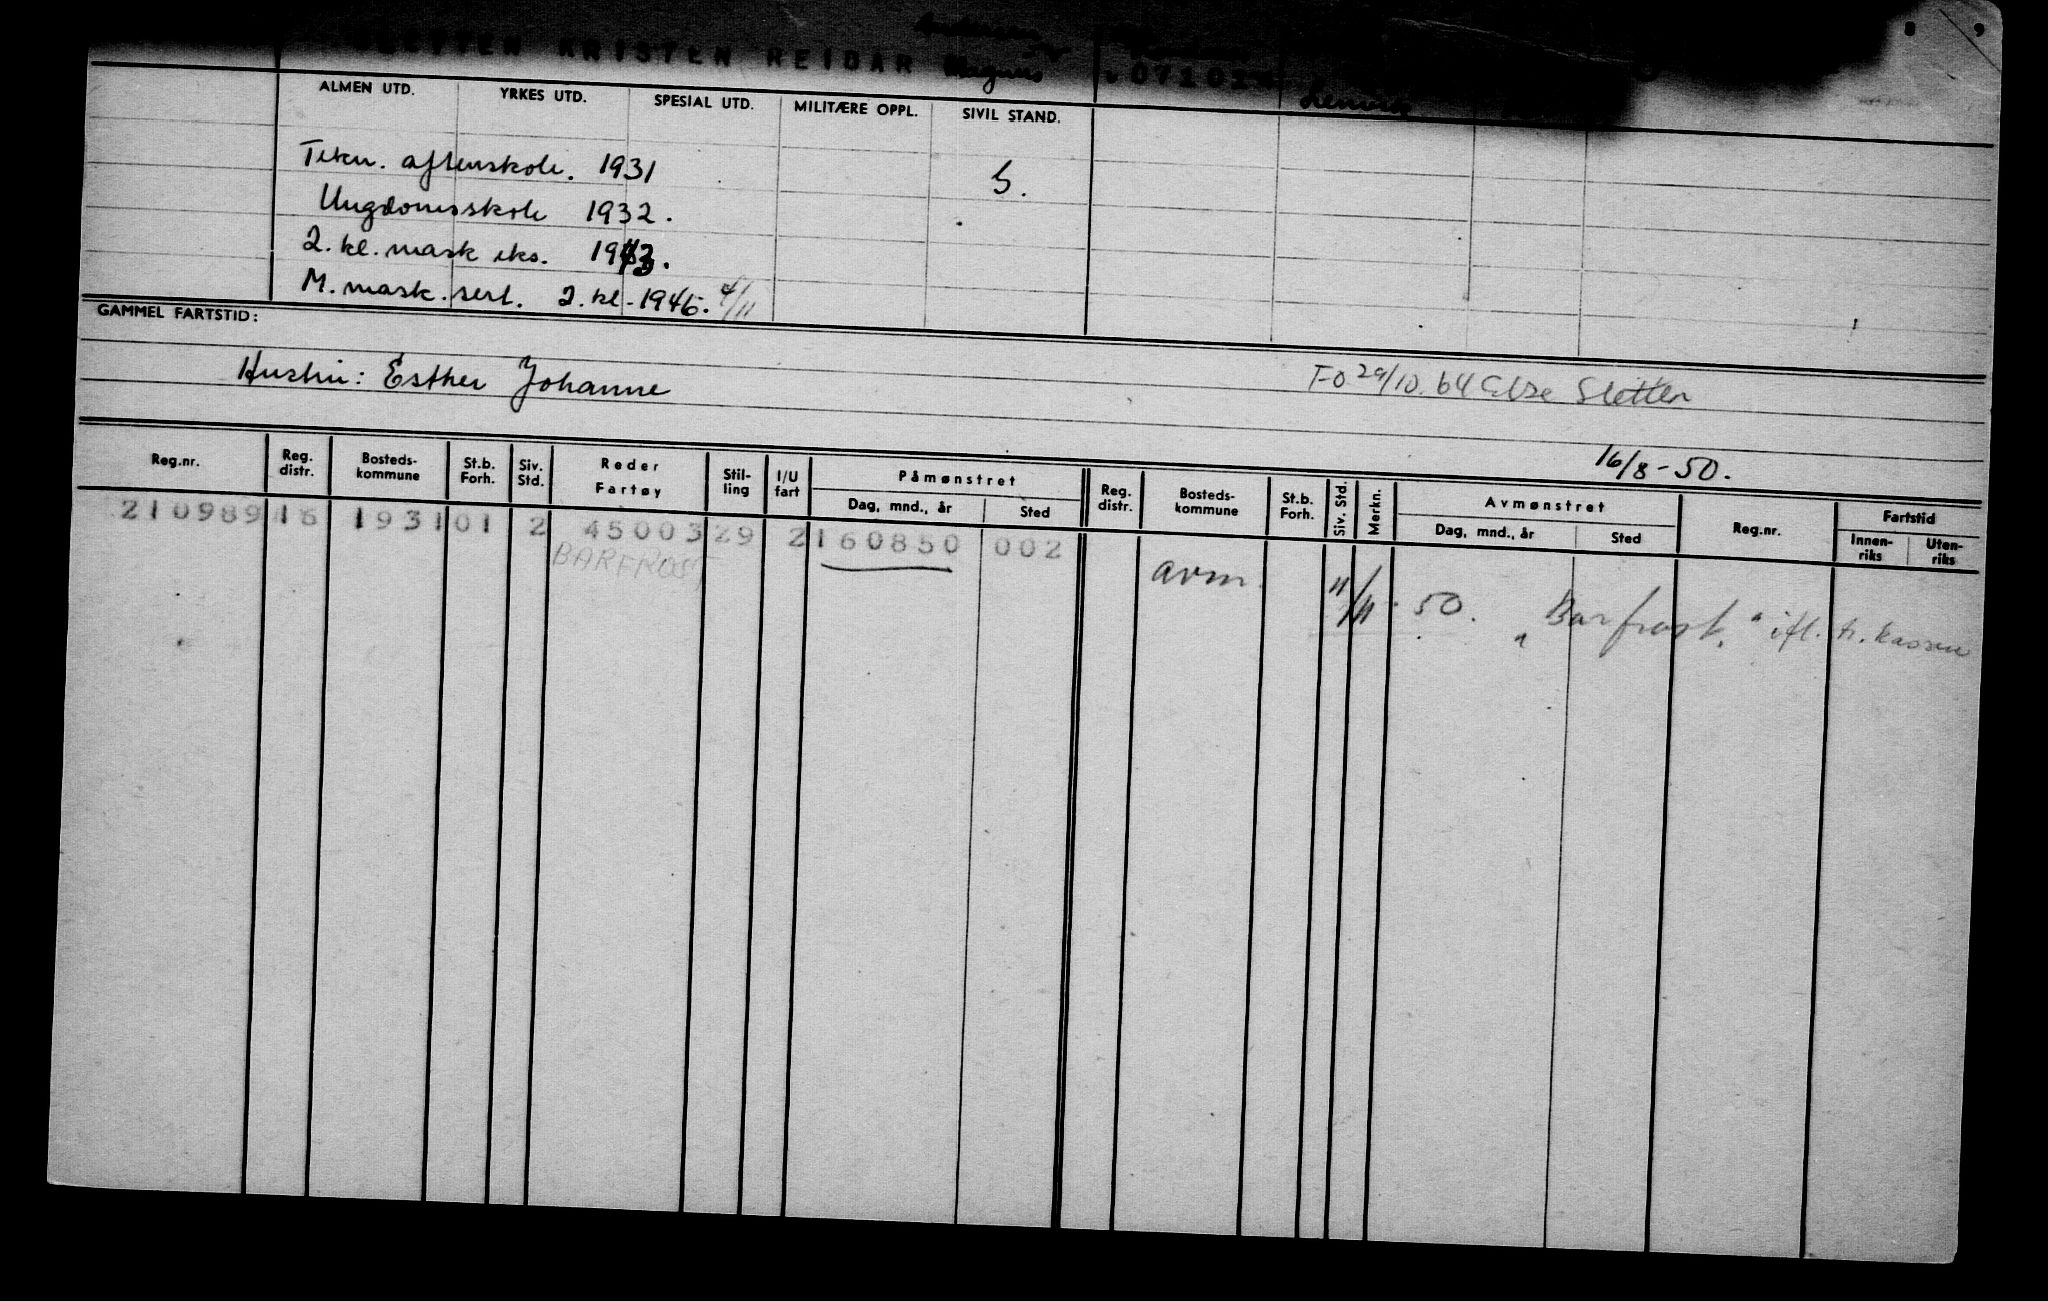 SLETTEN KRISTEN REIDAR Magnus 07101
Andersen
Lenvik
ALMEN UTD. YRKES UTD. SPESIAL UTD. MILITÆRE OPPL. SIVIL STAND.
Tekn. aftenskole. 1931 S.
Ungdomsskole 1932.
2. kl. mask eks. 1943.
M. mask. sert. 2. kl. - 1945. 4/11
GAMMEL FARTSTID:
Hustru: Esther Johanne
F-o 29/10. 64 Else Sletten
16/8 - 50.
Reg.nr. Reg. distr. Bosteds- kommune St.b. Forh. Siv. Std. Reder Fartøy Stil- ling I/U fart Påmønstret Dag, mnd., år Sted Reg. distr. Bosteds- kommune St.b. Forh. Siv. Std. Merkn. Avmønstret Dag, mnd., år Sted Reg.nr. Fartstid Innen- riks Uten- riks
210989 16 1931 01 2 45003 29 2 160850 002
BARFROST
avm. 11/11 - 50. "Barfrost." ifl. tr. kassen